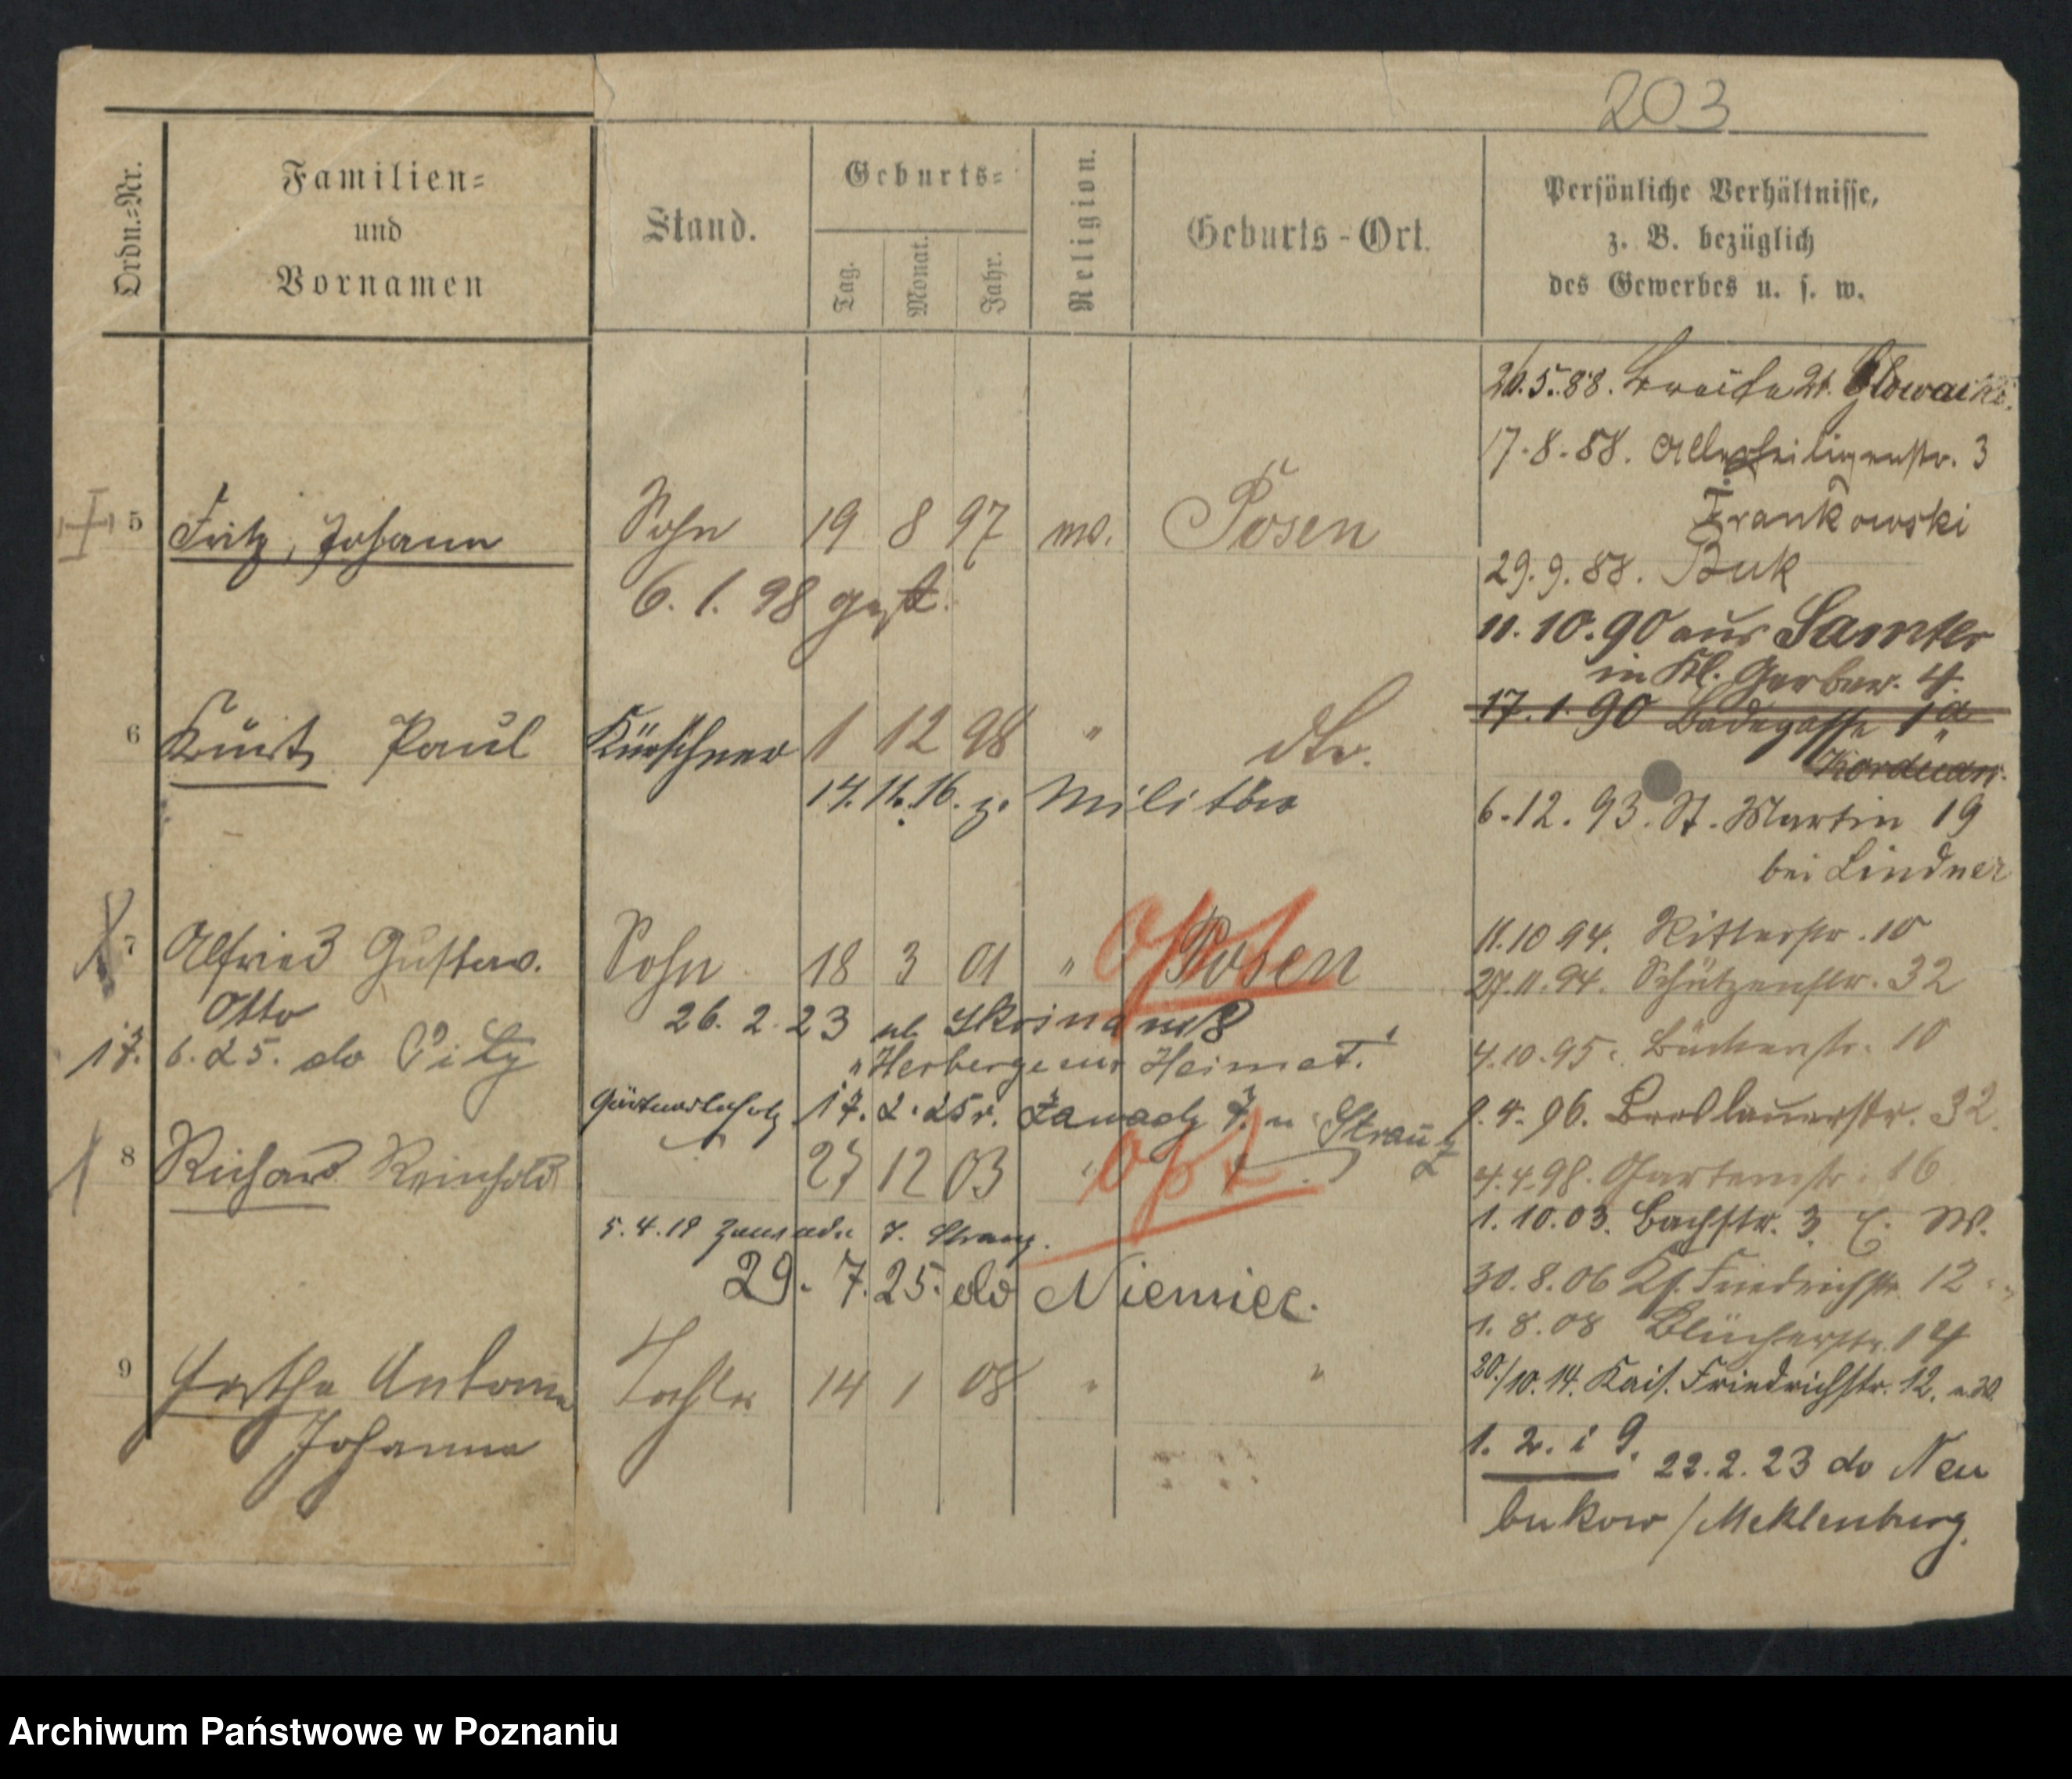 203
Ordn.-Nr.
Familien-
und
Vornamen
Stand.
Geburts-
Tag.
Monat.
Jahr.
Religion.
Geburts-Ort.
Persönliche Verhältnisse,
z. B. bezüglich
des Gewerbes u. s. w.
5 Fritz, Johann Sohn 19 8 97 Posen
6. 1. 98 gest.
6 Kurt Paul Kürschner 1 12 98 " dto.
14. 11. 16. z. Militär
7 Alfred Gustav. Sohn 18 3 01 " Posen
Opt
Otto
26. 2. 23 ul
"Herberge zur Heimat."
17. 6. 25. do Piły
17. 2. 25 r. Zawady 7. u Strauß
8 Richard Reinhold 27 12 03 "
Opt
5. 4. 19 Zawade 7.
29. 7. 25. do Niemiec.
9 Herthe Antonie Tochter 14 1 08 " "
Johanna
26.5.88. Breite 21.
17.8.88. Allerheiligenstr. 3
Frankowski
29.9.88. Buk
11.10.90 aus Samter
in Kl. Gerber. 4.
17.1.90 Badegasse 1a
Korduan.
6.12.93. St. Martin 19
bei Lindner
11.10 94. Ritterstr. 10
27.11.94. Schützenstr. 32
4.10.95. 10
9.4.96. Breslauerstr. 32.
4.4.98. Gartenstr. 16
1.10.03. Bachstr. 3 E. W.
30.8.06 Ks. Friedrichstr. 12
1.8.08 Blücherstr. 14
20./10.14. Kais. Friedrichstr. 12.
1. 2. i 9. 22.2.23 do Neu
bukow / Meklenburg.
Archiwum Państwowe w Poznaniu